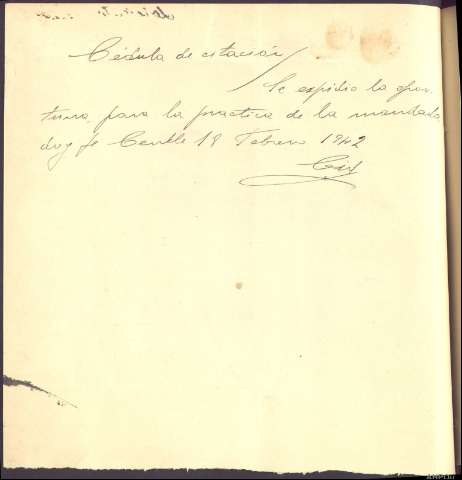 Cédula de citación
Se expidio la opor
tuna para la practica de la mandado
doy fe 18 Febrero 1942